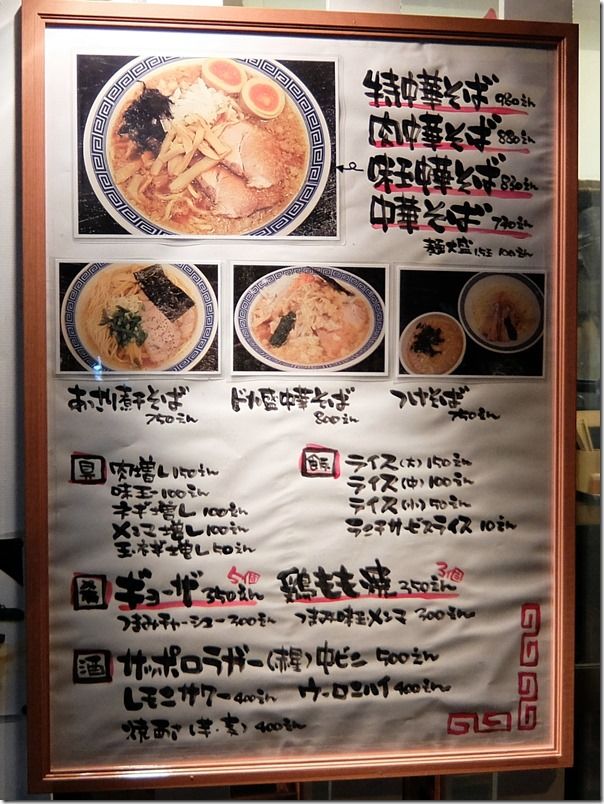 特中華そば 980えん
肉中華そば 880えん
味玉中華そば 830えん
中華そば 730えん
麺大盛 1.5玉 100えん
あっさり煮干そば
750えん
ドカ盛中華そば
800えん
つけそば
750えん
具
肉増し 150えん
味玉 100えん
ネギ増し 100えん
メンマ増し 100えん
玉ネギ増し 50えん
飯
ライス(大) 150えん
ライス(中) 100えん
ライス(小) 50えん
ランチサービスライス 10えん
肴
ギョーザ 350えん 5個
鶏もも焼 350えん 3個
つまみチャーシュー 300えん
つまみ味玉メンマ 300えん
酒
サッポロラガー(赤星)中ビン 500えん
レモンサワー 400えん
ウーロンハイ 400えん
焼酎(芋・麦) 400えん